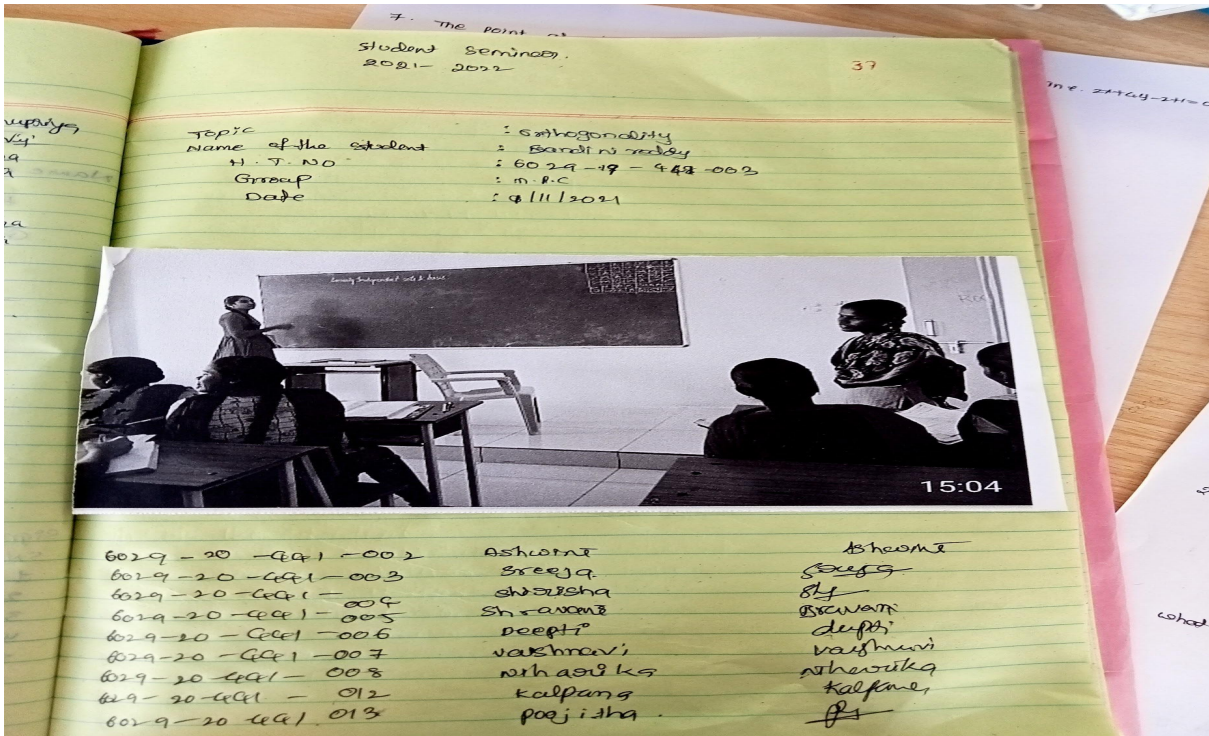 7. The point
Student Seminar.
2021- 2022
37
Topic : Orthogonality
Name of the student : Bandi Ni reddy
H. T. NO : 6029-19-441-003
Group : M.P.C
Date : 9/11/2021
Linearly Independent sets & bases
15:04
6029-20-441-002 Ashwini Ashwini
6029-20-441-003 Sreeja
6029-20-441-004 Shirisha
6029-20-441-005 Shravani Sravani
6029-20-441-006 Deepti deepti
6029-20-441-007 vaishnavi vaishnavi
6029-20-441-008 Niharika Niharika
6029-20-441-012 Kalpana Kalpana
6029-20-441 013 Poojitha.